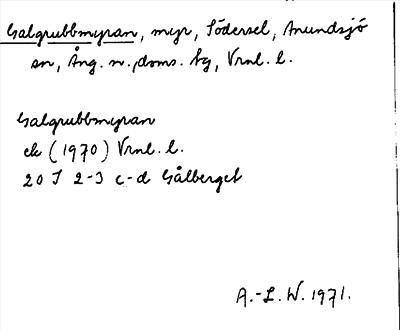 Galgrubbmyran, myr, Södersel, Anundsjö
sn, Ång. n. doms. bg, Vrnl. l.
Galgrubbmyran
ek (1970) Vrnl. l.
20 J 2-3 c-d Gålberget
A.-L. W. 1971.